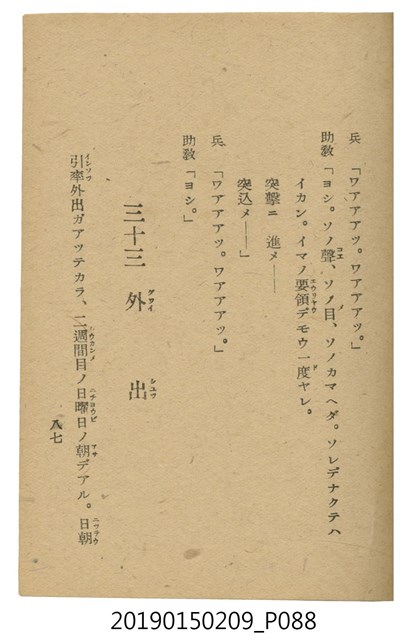 兵 「ワアアアッ。ワアアアッ。」
助教「ヨシ。ソノ聲、ソノ目、ソノカマヘダ。ソレデナクテハ
イカン。イマノ要領デモウ一度ヤレ。
突撃ニ 進メ――
突込メ――」
兵 「ワアアアッ。ワアアアッ。」
助教「ヨシ。」
三十三 外出
引率外出ガアッテカラ、二週間目ノ日曜日ノ朝デアル。日朝
八七
20190150209_P088